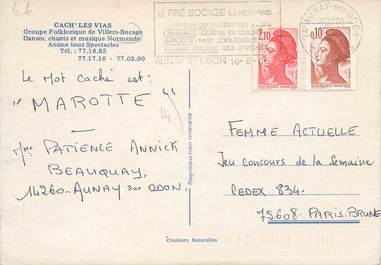 CACH' LES VIAS
Groupe Folklorique de Villers-Bocage
Danses, chants et musique Normande
Anime tous Spectacles
Tél. : 77.18.83
77.17.16 - 77.02.00
LE PRÉ-BOCAGE
14 AUNAY-S-ODON
AUNAY S/ ODON
2,10
0,10
Le Mot caché est:
"MAROTTE"
14
Mme PATIENCE ANNICK
BEAUQUAY,
14260-AUNAY sur ODON.
Reproduction Interdite
FEMME ACTUELLE
Jeu concours de la Semaine
CEDEX 834.
75608-PARIS-BRUNE
Couleurs Naturelles